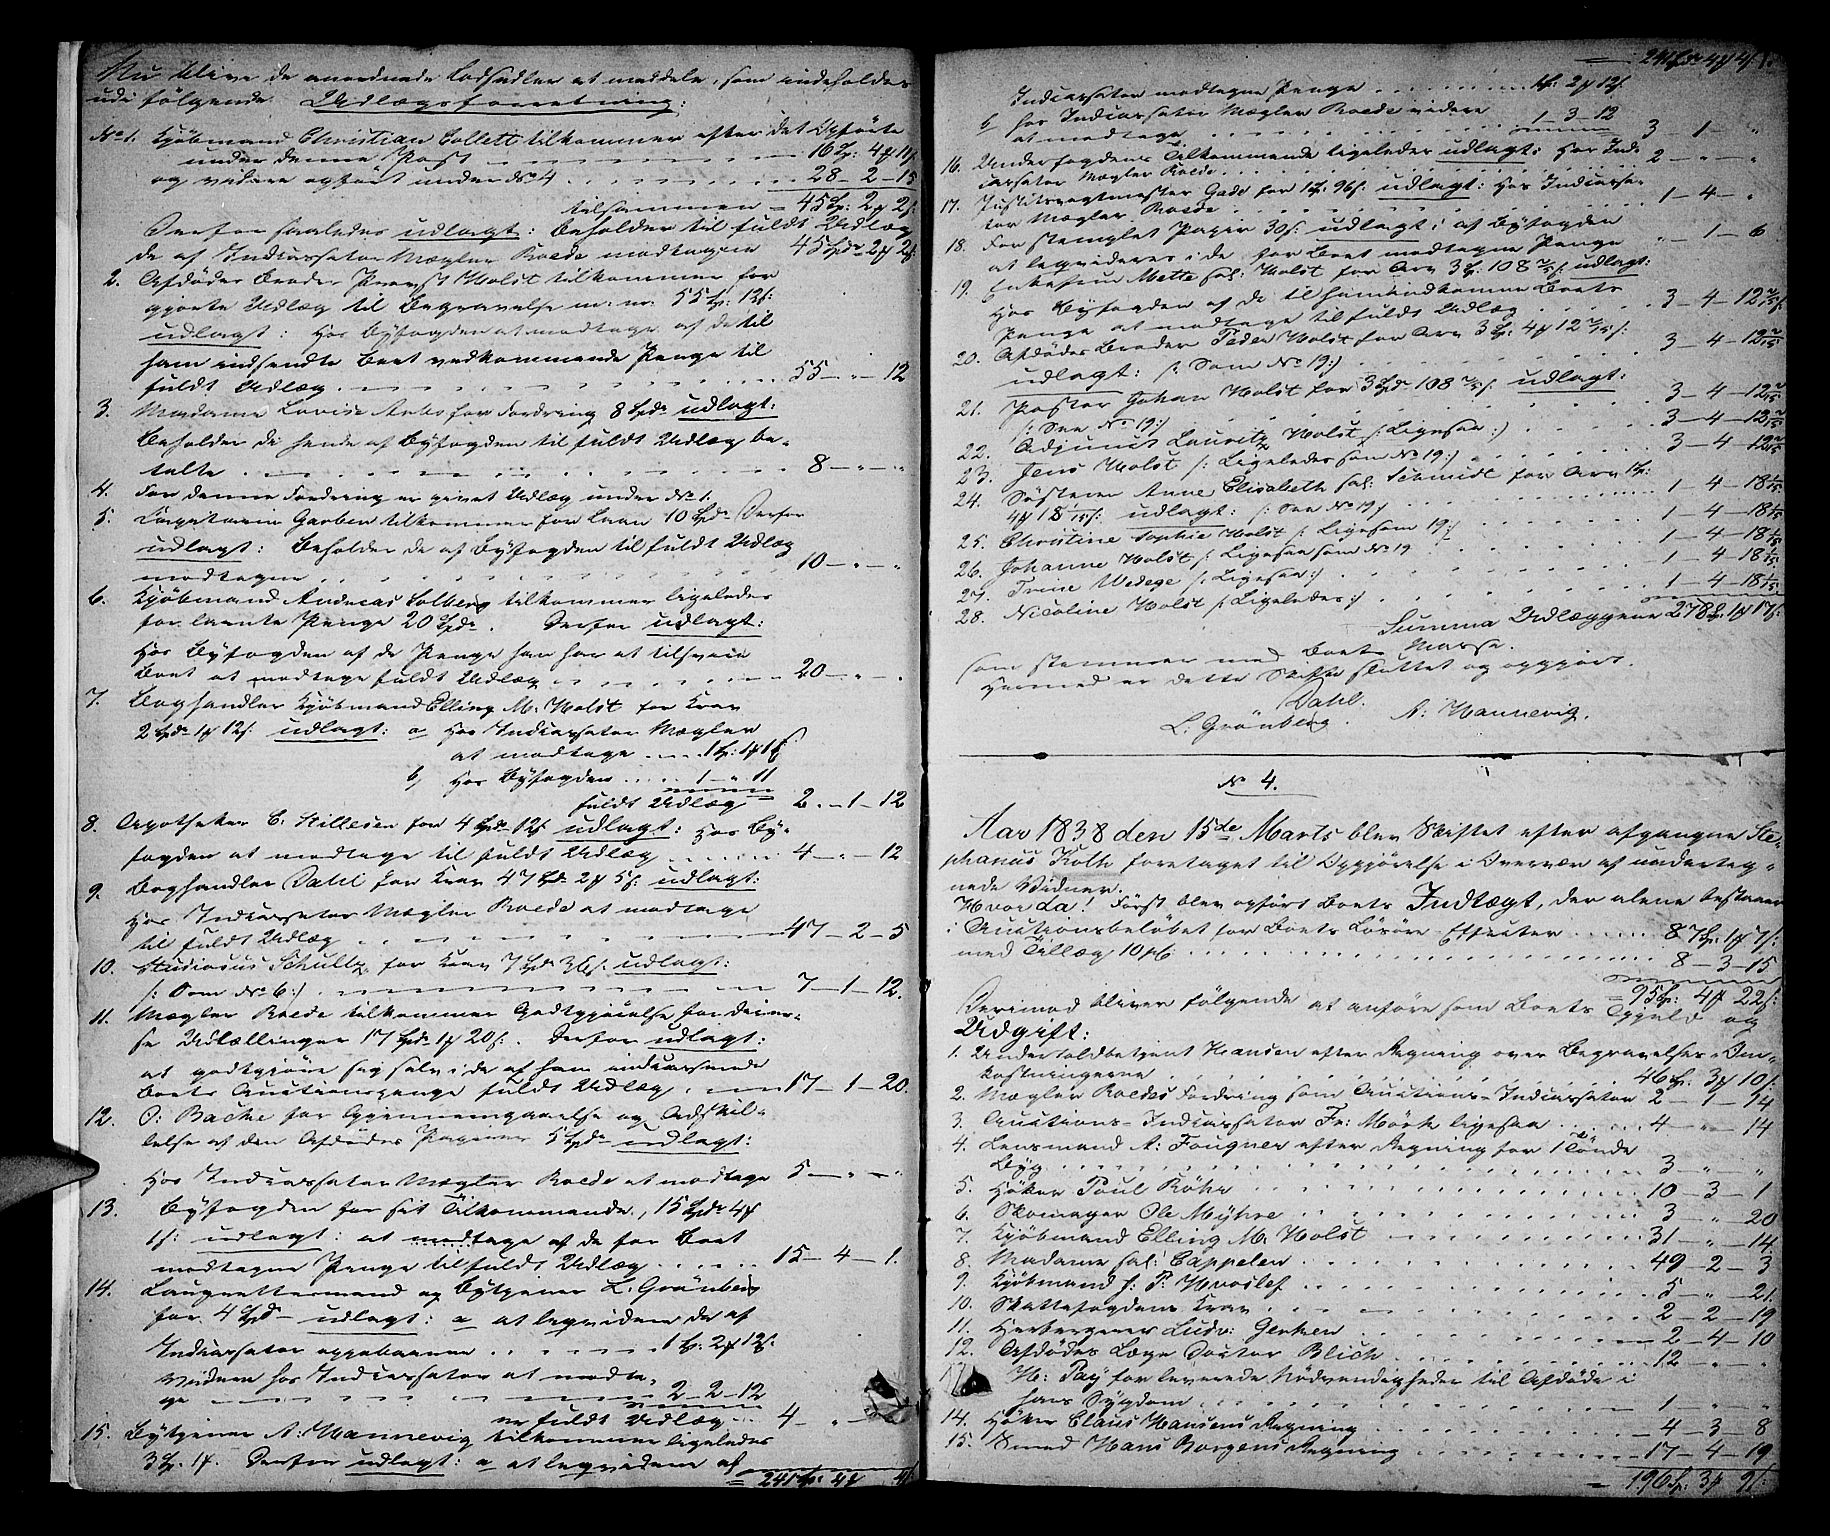 Nu blive de anordnede Lodsedler at meddele, som indeholdes
udi følgende Udlægsforretning:
No 1. Kjøbmand Christian Collett tilkommer efter det Opførte
under denne Post 16 Sp: 4 # 11 s
og videre opført under No 4 28 - 2 - 15
tilsammen 45 Sp: 2 # 2 s:
Derfor saaledes udlagt: Beholder til fuldt Udlæg
de af Indcassator Mægler Roede modtagne 45 Spdr 2 # 2 s:
2. Afdødes Broder Provst Holst tilkommer for
gjorte Udlæg til Begravelse m: m: 55 Sp: 12 s:
udlagt: Hos Byfogden at modtage af de til
ham indsendte Boet vedkommende Penge til
fuldt Udlæg 55 - " - 12
3. Madame Lovise Aubs for Fordring 8 Spdr udlagt:
Beholder de hende af Byfogden til fuldt Udlæg be-
talte 8 - " - "
4. For denne Fordring er givet Udlæg under No 1.
5. Capitainin Garben tilkommer for Laan 10 Spdr Derfor
udlagt: Beholder de af Byfogden til fuldt Udlæg
modtagne 10 - " - "
6. Kjøbmand Andreas Solberg tilkommer ligeledes
for laante Penge 20 Spdr. Derfor udlagt:
Hos Byfogden af de Penge han har at tilsvare
Boet at modtage fuldt Udlæg 20 - " - "
7. Boghandler Kjøbmand Elling M. Holst for Krav
2 Spdr 1 # 12 s: udlagt: a Hos Indcassator Mægler
at modtage 1 Sp: 1 # 1 s
b, Hos Byfogden 1 - " 11
fuldt Udlæg 2 - 1 - 12
8. Apotheker C: Killesen for 4 Spdr 12 s udlagt: Hos By-
fogden at modtage til fuldt Udlæg 4 - " - 12
9. Boghandler Dahl for Krav 47 Spdr 2 # 5 s: udlagt:
Hos Indcassator Mægler Roede at modtage
til fuldt Udlæg 47 - 2 - 5
10. Studiosus Schultz for Krav 7 Spdr 36 s: udlagt:
/: Som No 6 :/ 7 - 1 - 12.
11. Mægler Roede tilkommer Godtgjørelse for diver-
se Udtællinger 17 Spdr 1 # 20 s:. Derfor udlagt:
at godtgjøre sig selv i de af ham indcasserede
Boets Auctionspenge fuldt Udlæg 17 - 1 - 20.
12. O: Backe for Gjennemgaaelse og Adskil-
lelse af den Afdødes Papirer 5 Spdr udlagt:
Hos Indcassator Mægler Roede at modtage 5 - " - "
13. Byfogden for sit Tilkommende, 15 Spdr 4 #
1 s: udlagt: at modtage af de for Boet
modtagne Penge til fuldt Udlæg 15 - 4 - 1.
14. Laugrettesmand og Bytjener L. Grønberg
for 4 Spdr udlagt: a at leqvidere de af
Indcassator oppebaarne 1 Sp: 2 # 12 s:
videre hos Indcassator at modta-
ge 2 - 2 - 12
er fuldt Udlæg 4 - " - "
15. Bytjener A: Hannevig tilkommer ligeledes
3 Sp: 1 #. Derfor udlagt: a at leqvidere af
241 Sp: 4 # 4 s:
241 Spdr 4 # 4 s:
Indcassator modtagne Penge 1 Sp: 2 # 12 s:
b hos Indcassator Mægler Roede videre
at modtage 1 - 3 - 12
3 - 1 - "
16. Underfogdens Tilkommende ligeledes udlagt: Hos Ind-
cassator Mægler Roede 2 - " - "
17. Justitsvagtmester Gade for 1 Sp: 96 s: udlagt: Hos Indcassa-
tor Mægler Roede 1 - 4 - "
18. For stemplet Papir 30 s: udlagt: af Byfogden
at leqvideres i de for Boet modtagne Penge " - 1 - 6
19. Enkefrue Mette sal: Holst for Arv 3 Sp: 108 2/15 s: udlagt:
Hos Byfogden af de til ham indkomne Boets
Penge at modtage til fuldt Udlæg 3 - 4 - 12 2/15 s:
20. Afdødes Broder Peder Holst for Arv 3 Sp: 4 # 12 2/15 s:
udlagt: /: Som No 19 :/ 3 - 4 - 12 2/15
21. Pastor Johan Holst for 3 Spdr 108 2/15 s: udlagt:
/: See No 19 :/ 3 - 4 - 12 2/15
22. Adjunct Lauritz Holst /: Ligesaa :/ 3 - 4 - 12 2/15
23. Jens Holst /: Ligeledes som No 19 :/ 3 - 4 - 12 2/15
24. Søsteren Anne Elisabeth sal: Schmidt for Arv 1 Sp:
4 # 18 1/15 s: udlagt: /: See No 19 :/ 1 - 4 - 18 1/15
25. Christine Sophie Holst /: Ligesom 19 :/ 1 - 4 - 18 1/15
26. Johanne Holst /: Ligesaa som No 19 1 - 4 - 18 1/15
27. Trine Wedege /: Ligesaa :/ 1 - 4 - 18 1/15
28. Nicoline Holst /: Ligeledes :/ 1 - 4 - 18 1/15
Summa Udlæggene 278 Sp: 1 # 17 s:
som stemmer med Boets Masse.
Hermed er dette Skifte sluttet og opgjort.
Dahl.
L: Grönberg. A: Hannevig.
No 4.
Aar 1838 den 15de Marts blev Skiftet efter afgangne Ste-
phanus Kolk foretaget til Opgjørelse i Overvær af underteg-
nede Vidner.
Hvor da! Først blev opført Boets Indtægt, der alene bestaaer
i Auctionsbeløbet for Boets Løsøre Effecter 87 Sp: 1 # 7 s:
med Tillæg 10 pC 8 - 3 - 15
95 Sp: 4 # 22 s:
Derimod bliver følgende at anføre som Boets Gjæld og
Udgift:
1. Undertoldbetjent Hansen efter Regning over Begravelses-Om-
kostningerne 46 Sp: 3 # 10 s:
2. Mægler Roedes Fordring som Auctions-Indcassator 2 - 1 - 14
3. Auctions-Indcassator Fr: Mörk ligesaa 4 - " - 14
4. Lensmand A: Fougner efter Regning for 1 Tönde
Byg 3 " "
5. Höker Poul Röhr 10 - 3 - 1
6. Skomager Ole Myhre 3 " 20
7. Kjøbmand Elling M. Holst 31 - " - 14
8. Madame sal: Cappelen 49 - 2 - 3
9. Kjøbmand J: P: Hvoslef 5 " 21.
10. Skattefogdens Krav 2 - 2 - 19
11. Herbergerer Ludv: Gerken 2 - 4 - 10
12. Afdødes Læge Doctor Blich 12 - " - "
H: Pay for leverede Nödvendigheder til Afdøde i
hans Sygdom 1 " "
14. Höker Claus Hansens Regning 4 - 3 - 8
15. Smed Hans Borgens Regning 17 - 4 - 19
196 Sp: 3 # 9 s: